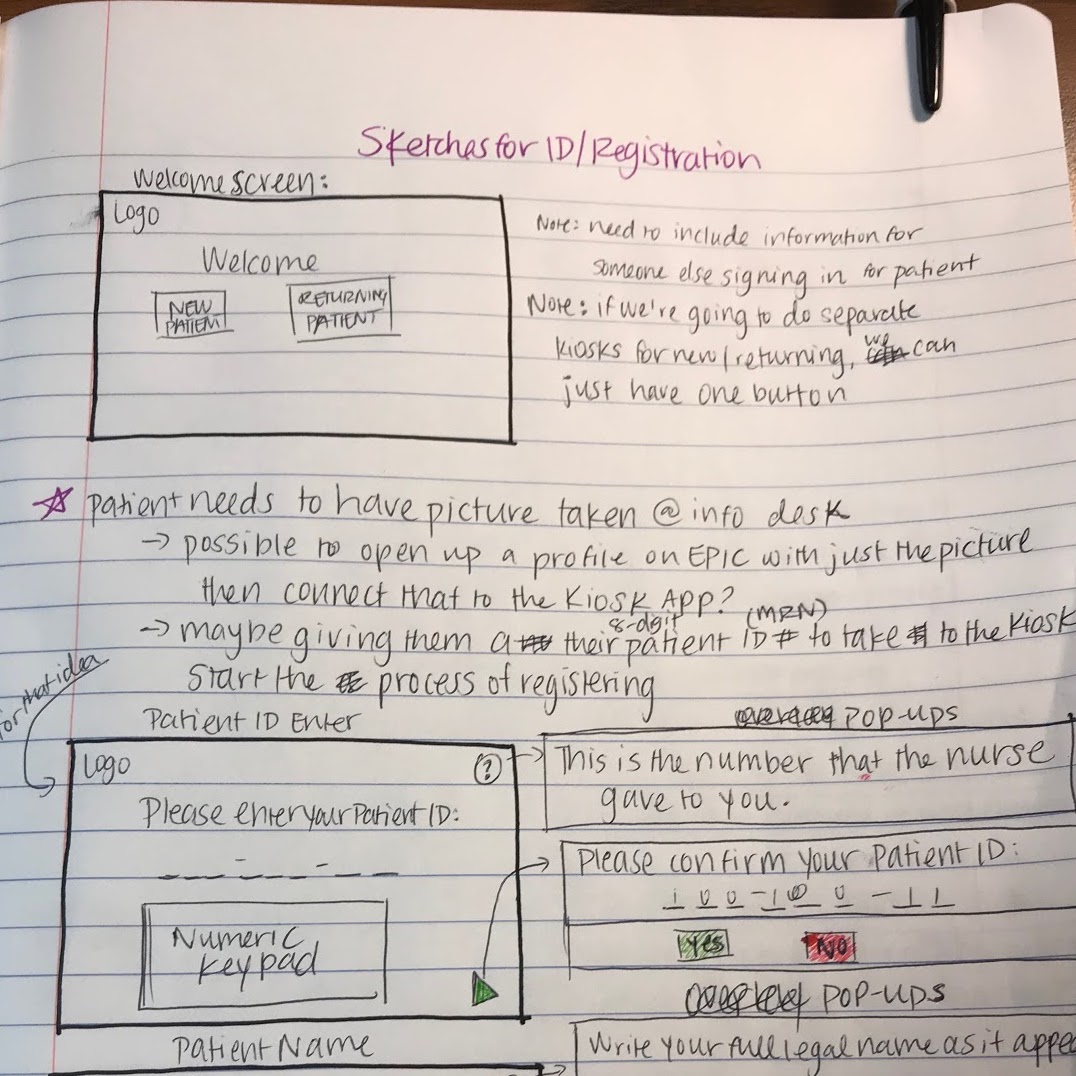 Sketches for ID/Registration
Welcome screen:
Logo
Welcome
NEW PATIENT
RETURNING PATIENT
Note: need to include information for
someone else signing in for patient
Note: if we're going to do separate
kiosks for new/returning, we can
just have one button
☆ patient needs to have picture taken @ info desk
→ possible to open up a profile on EPIC with just the picture
then connect that to the Kiosk App?
→ maybe giving them their 8-digit patient ID # (MRN) to take to the Kiosk
start the process of registering
for that idea
Patient ID Enter
Logo
?
Please enter your Patient ID:
_ _ _ - _ _ _ - _ _
Numeric
keypad
POP-UPS
This is the number that the nurse
gave to you.
Please confirm your Patient ID:
1 0 0 - 1 0 0 - 1 1
Yes
No
POP-UPS
Patient Name
Write your full legal name as it appea